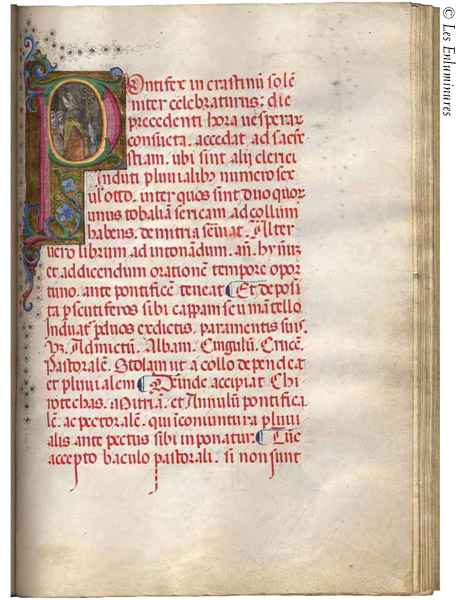 Pontifex in crastinū solē
niter celebraturus: die
precedenti hora uesperar
consueta. accedat ad sacri
stiam. ubi sint alij clerici
Induti pluuialibꝰ numero sex
ul' otto. inter quos sint duo quor
unus tobaliā sericam ad collum
habens. de mitria seruiat. Alter
uero librum ad intonandum. an̄. hȳnūz
et ad dicendum orationē tempore opor
tuno. ante pontificē teneat Et deposi
ta p scutiferos sibi cappam seu mantello
Induat pduos ex dictis. paramentis suis.
Vz Admictū. Albam. Cingulū. Crucē.
Pastoralē. Stolam ut a collo dependeāt
et pluuialem Deinde accipiat Chi
rotechas. Mitriā. et Annulū pontifica
lē. ac pectoralē. qui coniuntura pluui
alis ante pectus sibi in ponatur. Tūc
accepto baculo pastorali. si non sunt
© Les Enluminures